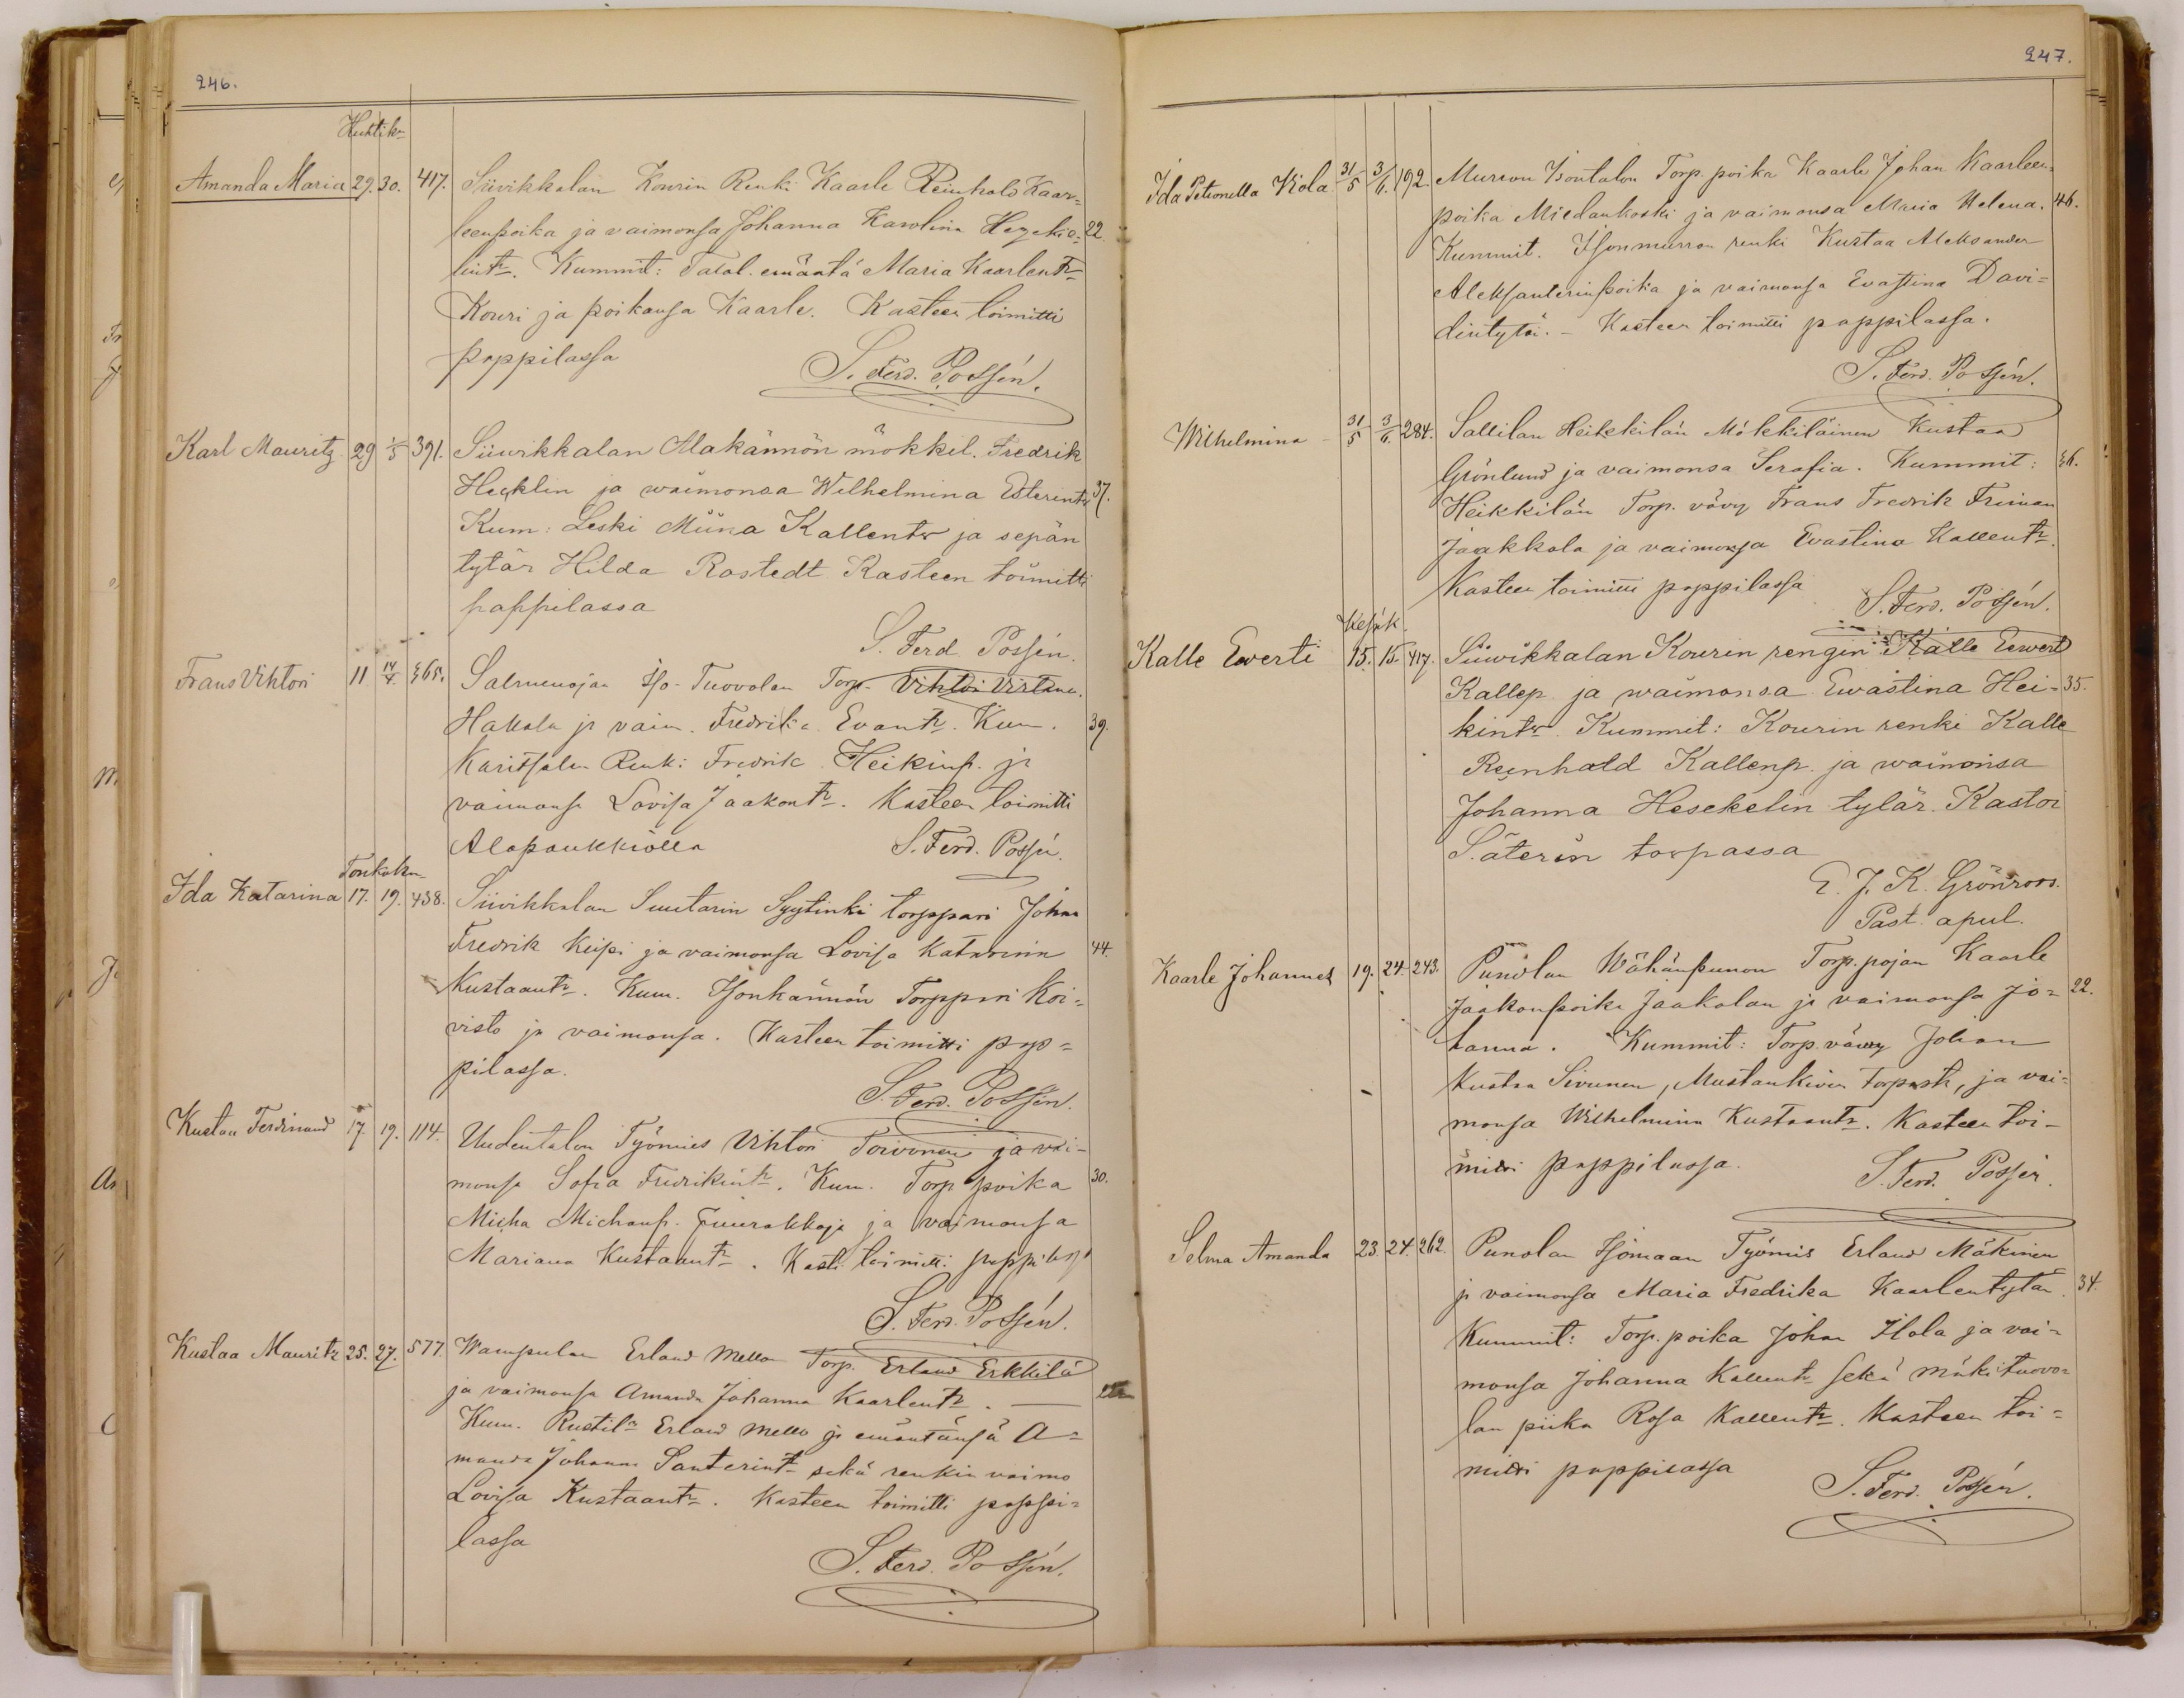 246.
Huhtik.
Amanda Maria 29. 30. 417. Siivikkalan Kourin Renki Kaarle Reinhold Kaar=
leenpoika ja vaimonsa Johanna Karolina Hezekie= 22.
lint. Kummit: Talol. emäntä Maria Kaarlent
Kouri ja poikansa Kaarle. Kasteen toimitti
pappilassa S. Ferd. Possén.
Karl Mauritz 29 1/5 391. Siiwikkalan Alakännön mökkil. Fredrik
Hecklin ja waimonsa Wilhelmina Esterintr 37.
Kum: Leski Miina Kallentr ja sepän
tytär Hilda Rostedt Kasteen toimitti
pappilassa
S. Ferd Possén.
Frans Vihtori 11 14/4. 365. Salmenojan Iso-Tuovolan Torp. Vihtori Virtanen
Hakala ja vaim. Fredrika Evantr. Kum. 39.
Karitsalan Renki Fredrik Heikinp. ja
vaimonsa Lovisa Jaakontr. Kasteen toimitti
Alapaukkiolla S. Ferd. Possén.
Toukoku
Ida Katarina 17. 19. 438. Siivikkalan Suutarin Syytinki torppari Johan
Fredrik Keipi ja vaimonsa Lovisa Katarina 44.
Kustaantr. Kum. Isonkännön Torppari Koi=
visto ja vaimonsa. Kasteen toimitti pap=
pilassa.
S. Ferd. Possén.
Kustaa Ferdinand 17. 19. 114. Uudentalon Työmies Vihtori Toivonen ja vai-
monsa Sofia Fredrikintr. Kum. Torp. poika 30.
Micha Michanp. Juurakkoja ja vaimonsa
Mariana Kustaantr. Kast. toimitti pappilassa
S. Ferd. Possén.
Kustaa Mauritz 25. 27. 577. Wampulan Erland Mellon Torp. Erland Erkkilä
ja vaimonsa Amanda Johanna Kaarlentr.
Kum. Rustil. Erland Mello ja emäntänsä A=
manda Johanna Santerintr sekä renkin vaimo
Lovisa Kustaantr. Kasteen toimitti pappi=
lassa
S. Ferd. Possén.
247.
Ida Petronella Kiola 31/5 3/6. 192. Murron Isontalon Torp. poika Kaarle Johan Kaarleen=
poika Miedankoski ja vaimonsa Maria Helena. 46.
Kummit. Isonmurron renki Kustaa Aleksander
Aleksanterinpoika ja vaimonsa Evastina Davi=
dintytär. - Kasteen toimitti pappilassa.
S. Ferd. Possén.
Wilhelmina - 31/5 3/6. 284. Sallilan Heikkilän Mökkiläinen Kustaa
Grönlund ja vaimonsa Serafia. Kummit: 36.
Heikkilän Torp. vävy Frans Fredrik Friman
Jaakkola ja vaimonsa Evastina Kallentr.
Kasteen toimitti pappilassa
S. Ferd. Possén.
Kesäk.
Kalle Ewerti 15. 15. 417. Siiwikkalan Kourin rengin Kalle Eewert
Kallep. ja waimonsa Ewastina Hei= 35.
kintr. Kummit: Kourin renki Kalle
Reinhald Kallenp. ja waimonsa
Johanna Hesekelin tytär. Kastoi
Säterin torpassa
E. J. K. Grönroos.
Past. apul.
Kaarle Johannes 19. 24. 243. Punolan Wähänpunon Torp. pojan Kaarle
Jaakonpoika Jaakolan ja vaimonsa Jo= 22.
hanna. Kummit: Torp. vävy Johan
Kustaa Sivunen, Mustankiven torpasta, ja vai=
monsa Wilhelmina Kustaantr. Kasteen toi-
mitti pappilassa.
S. Ferd. Possén.
Selma Amanda 23. 24. 262. Punolan Isomaan Työmies Erland Mäkinen
ja vaimonsa Maria Fredrika Kaarlentytär. 34.
Kummit: Torp. poika Johan Ilola ja vai=
monsa Johanna Kallentr sekä Mäkituovo=
lan piika Rosa Kallentr. Kasteen toi=
mitti pappilassa
S. Ferd. Possén.